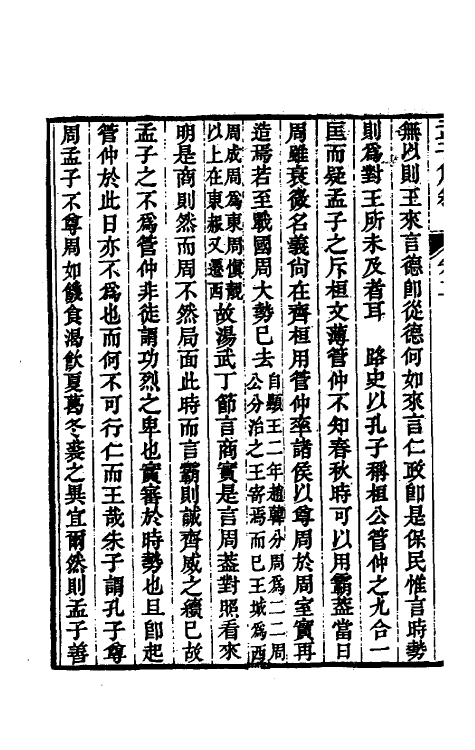 無以則王來言德卽從德何如來言仁政卽是保民惟言時勢
則爲對王所未及者耳　路史以孔子稱桓公管仲之九合一
匡而疑孟子之斥桓文薄管仲不知春秋時可以用霸蓋當日
周雖衰微名義尙在齊桓用管仲率諸侯以尊周於周室實再
造焉若至戰國周大勢已去自顯王二年趙韓分周爲二二周公分治之王寄焉而已王城爲西
周成周爲東周愼靚以上在東赧又遷西故湯武丁節言商實是言周葢對照看來
明是商則然而周不然局面此時而言霸則誠齊威之續已故
孟子之不爲管仲非徒謂功烈之卑也實審於時勢也且卽起
管仲於此日亦不爲也而何不可行仁而王哉朱子謂孔子尊
周孟子不尊周如饑食渴飮夏葛冬裘之異宜爾然則孟子善